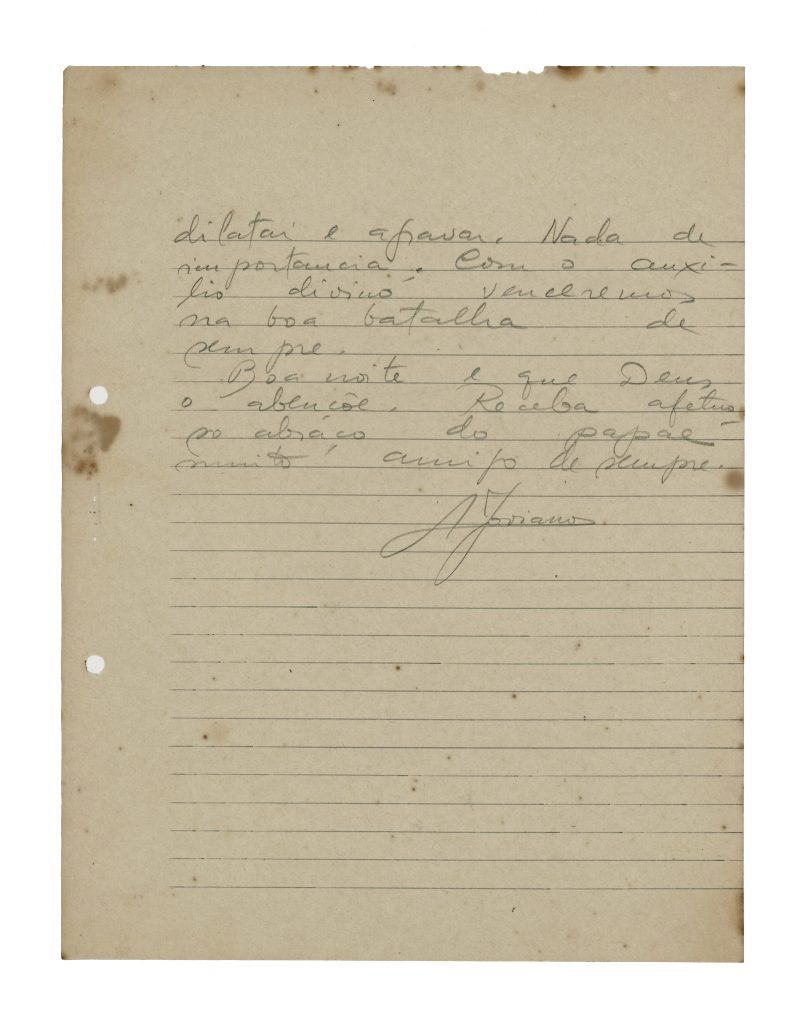 dilatar e agravar. Nada de
importancia. Com o auxi-
lio divino venceremos
na boa batalha de
sempre.
Boa noite e que Deus
o abençõe. Receba afetuo-
so abraço do papae
muito amigo de sempre.
A Joviano